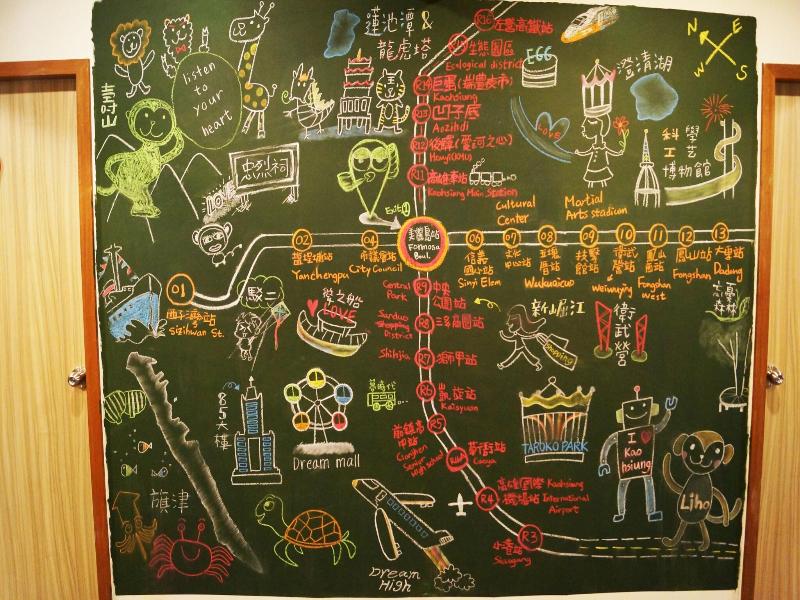 蓮池潭 &
龍虎塔
listen
to
your
heart
壽山
忠烈祠
R16 左營高鐵站
R15 生態園區
Ecological district
R14 巨蛋(瑞豐夜市)
Kaohsiung
R13 凹子底
Aozihdi
R12 後驛(愛河之心)
R11 高雄車站
Kaohsiung Main Station
EGG
Love
澄清湖
科工
博物館
N
E
W
S
Cultural
Center
Martial
Arts stadium
Exit 1
美麗島站
Formosa
Boul.
01
西子灣站
Sizihwan St.
02
鹽埕埔站
Yanchengpu
04
市議會站
City Council
06
信義
國小站
Sinyi Elem
07
文化
中心站
08
五塊
厝站
Wukuaicuo
09
技擊
館站
10
衛武
營站
Weiwuying
11
鳳山
西站
Fongshan
West
12
鳳山站
Fongshan
13
大東站
Dadong
駁二
愛之船
LOVE
Central
Park
R9 中央
公園站
Sanduo
Shopping
District
R8 三多商圈站
Shihjia
R7 獅甲站
R6 凱旋站
Kaisyuan
R5
前鎮高
中站
Cianjhen
Senior
High school
R4A 草衙站
Caoya
R4 高雄國際
機場站
Kaohsiung
International
Airport
R3
小港站
Siaogang
新崛江
shopping
衛
武
營
TAROKO PARK
I
Kao
hsiung
Liho
85大樓
Dream mall
旗津
Dream
High